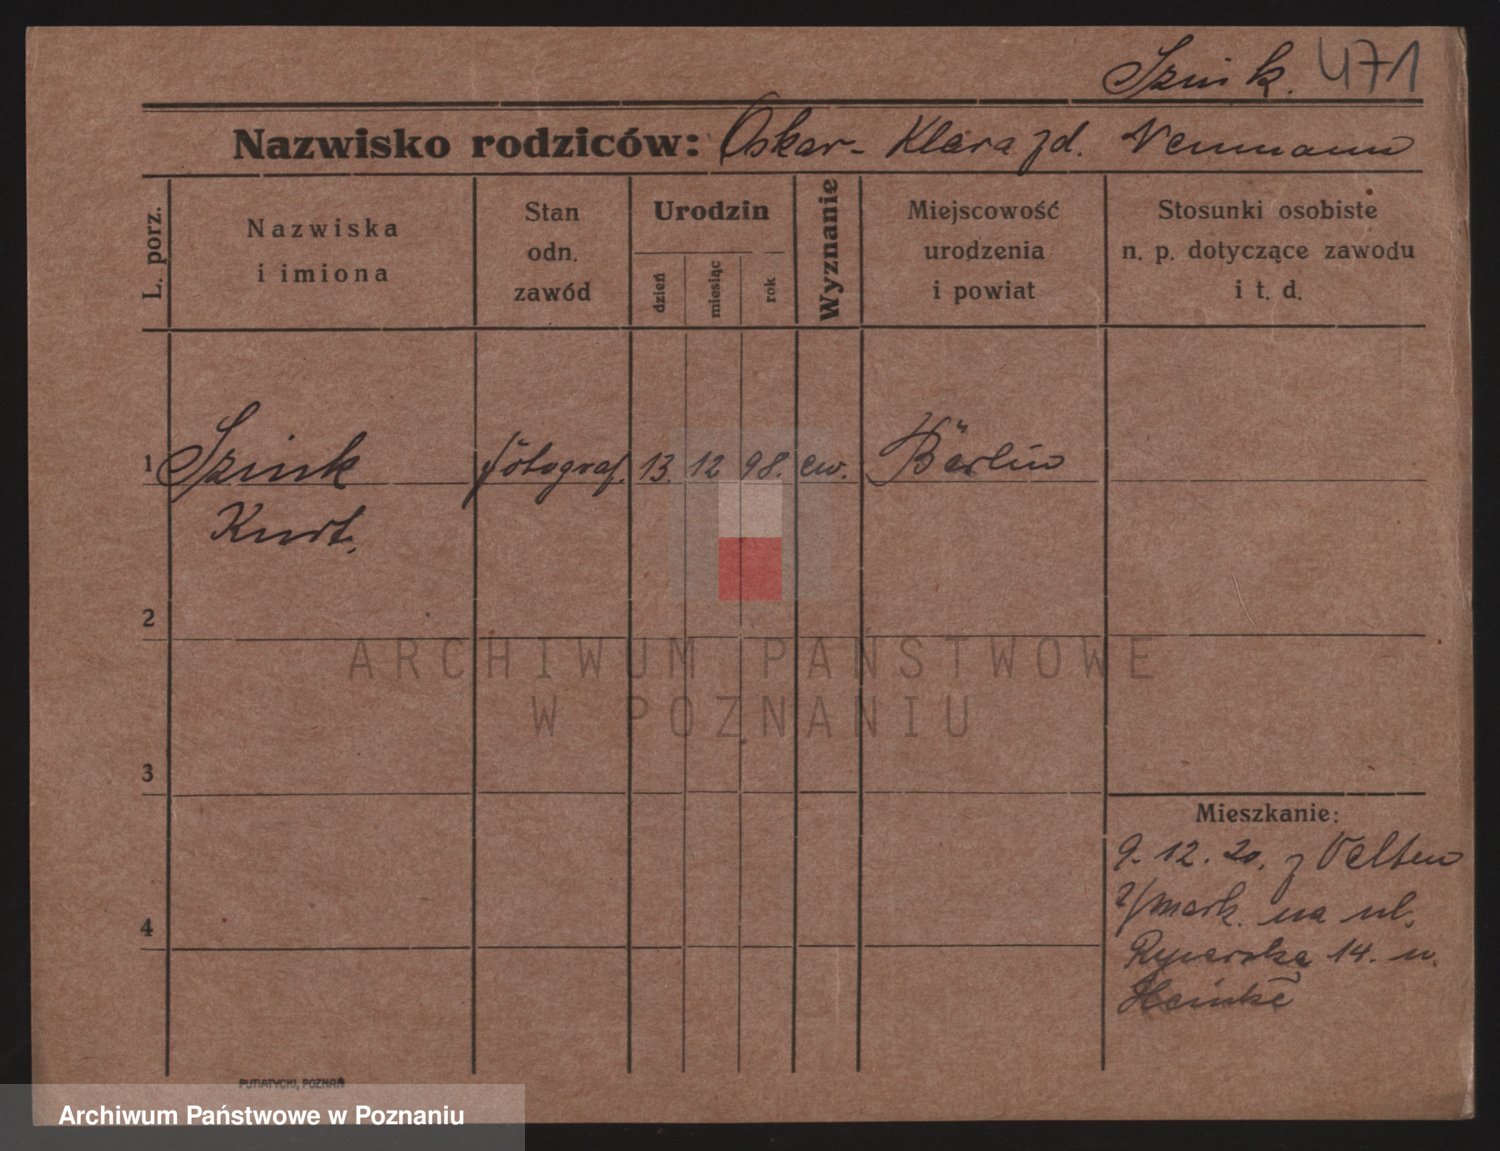 Szink. 471
Nazwisko rodziców: Oskar - Klara zd. Neumann
L. porz.
Nazwiska
i imiona
Stan
odn.
zawód
Urodzin
dzień
miesiąc
rok
Wyznanie
Miejscowość
urodzenia
i powiat
Stosunki osobiste
n. p. dotyczące zawodu
i t. d.
1 Szink fotograf. 13. 12 98. ew. Berlin
Kurt.
2
ARCHIWUM PAŃSTWOWE
W POZNANIU
3
Mieszkanie:
9. 12. 20. z Velten
mark. na ul.
4
Rycerska 14. u.
Heinke
PUTIATYCKI, POZNAŃ
Archiwum Państwowe w Poznaniu